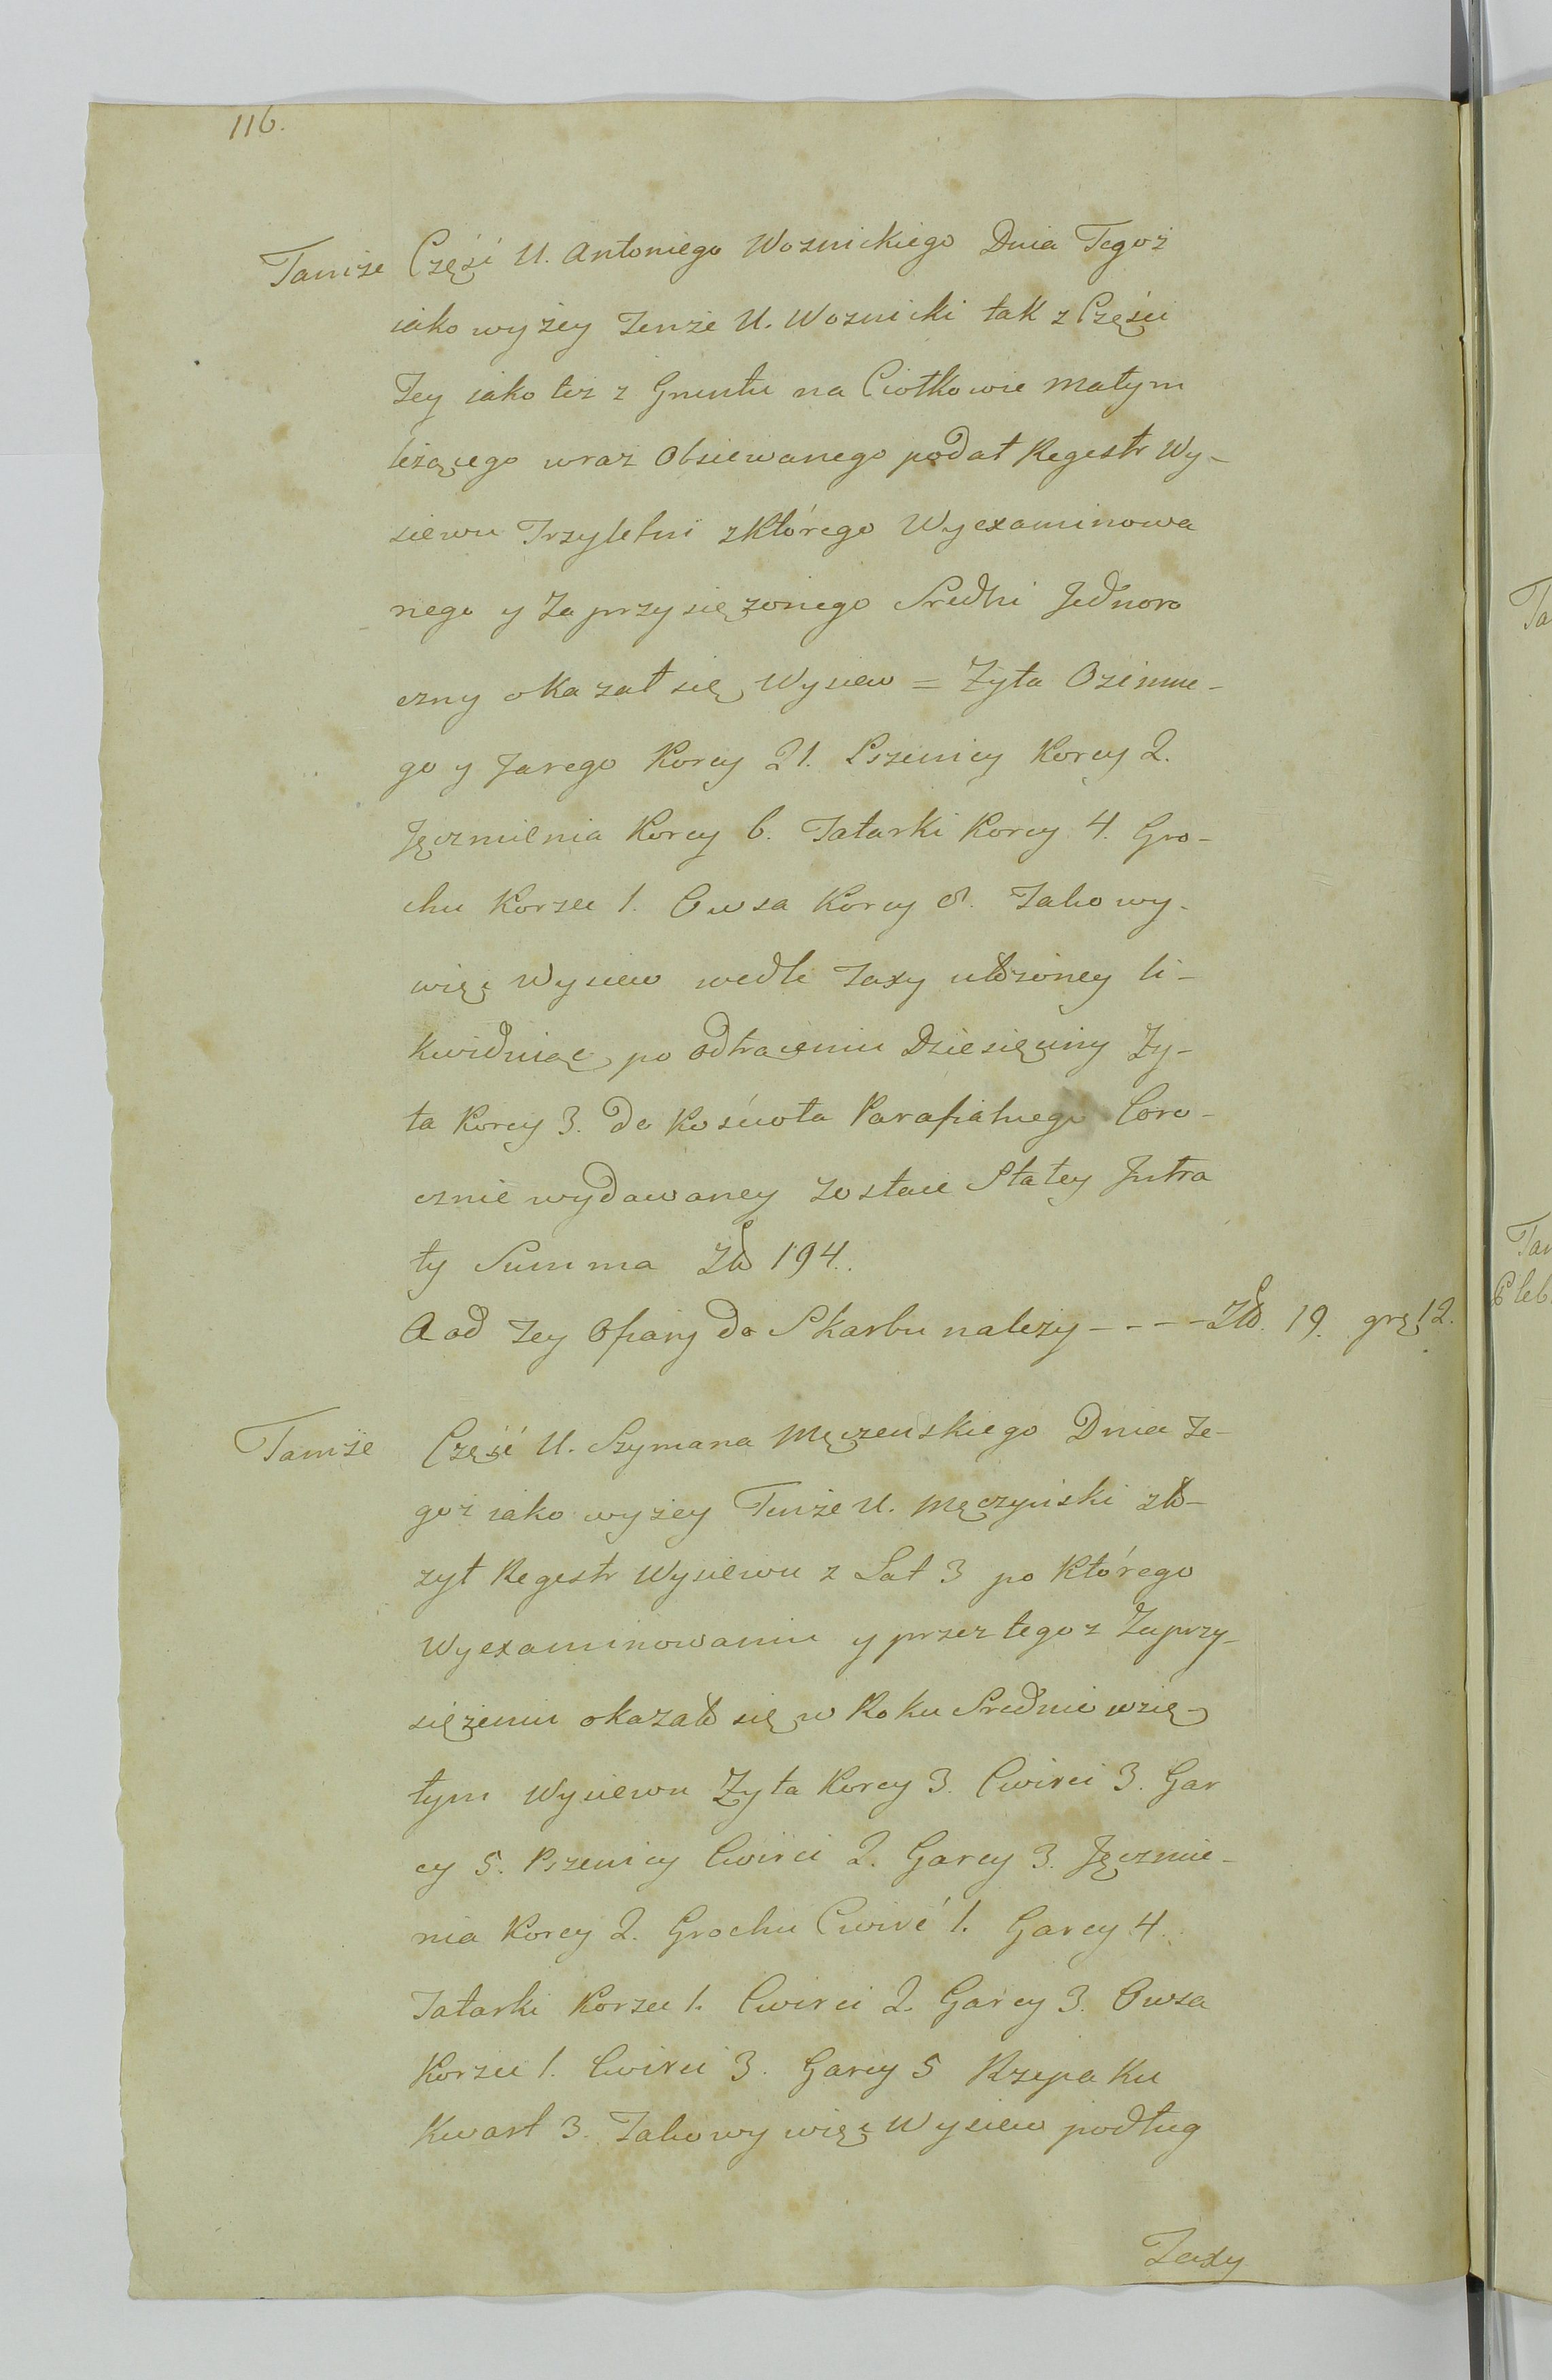 116.
Tamże Część U. Antoniego Woznickiego Dnia Tegoż
iako wyżey Tenże U. Woznicki tak z Części
Tey iako też z Gruntu na Ciołkowie małym
leżącego wraz Obsiewanego podał Regestr Wy-
siewu Trzyletni z Którego Wyexaminowa
nego y Zaprzysiężonego Sredni Jednoro
czny okazał się Wysiew = Zyta Ozimne-
go y Jarego Korcy 21. Pszenicy Korcy 2.
Jęczmienia Korcy 6. Tatarki Korcy 4. Gro-
chu Korzec 1. Owsa Korcy 8. Takowy-
więc Wysiew wedle Taxy ułożoney li-
kwiduiąc po odtrąceniu Dziesięciny Zy-
ta Korcy 3. do Kościoła Parafialnego Coro-
cznie wydawaney zostaie Stałey Intra
ty Summa Zł 194.
A od Tey Ofiary do Skarbu należy - - - - Zł. 19. grę 12.
Tamże Część U. Szymana Męczeńskiego Dnia Te-
goż iako wyżey Tenże U. Męczyński zło-
żył Regestr Wysiewu z Lat 3 po Którego
Wyexaminowaniu y przez tegoż Zaprzy-
siężeniu okazało się w Roku Srednie wzię-
tym Wysiewu Zyta Korcy 3. Cwierci 3. Gar
cy 5. Pszenicy Cwierci 2. Garcy 3. Jęczmie-
nia Korcy 2. Grochu Cwierć 1. Garcy 4.
Tatarki Korzec 1. Cwierci 2. Garcy 3. Owsa
Korzec 1. Cwierci 3. Garcy 5 Rzepaku
Kwart 3. Takowy więc Wysiew podług
Taxy